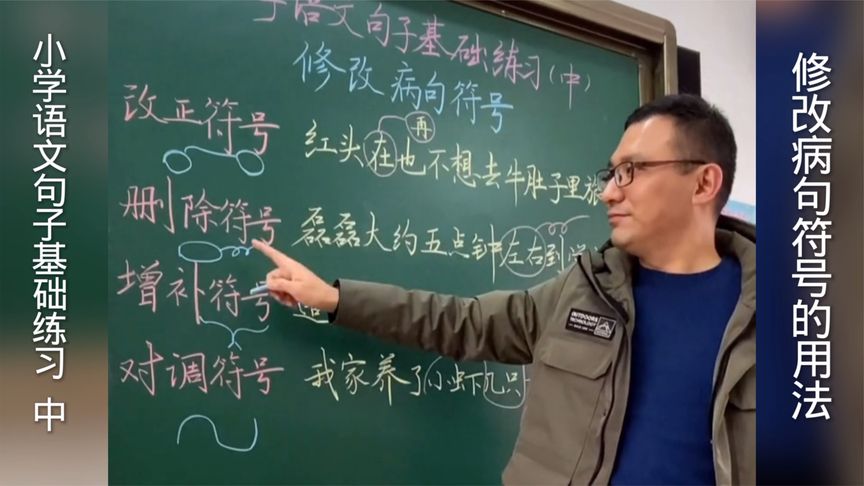 小学语文句子基础练习 中
语文句子基础练习(中)
修改病句符号
改正符号
再
红头在也不想去牛肚子里旅
删除符号
磊磊大约五点钟左右到学
增补符号
对调符号
我家养了小虾几只
OUTDOORS
TECHNOLOGY
修改病句符号的用法